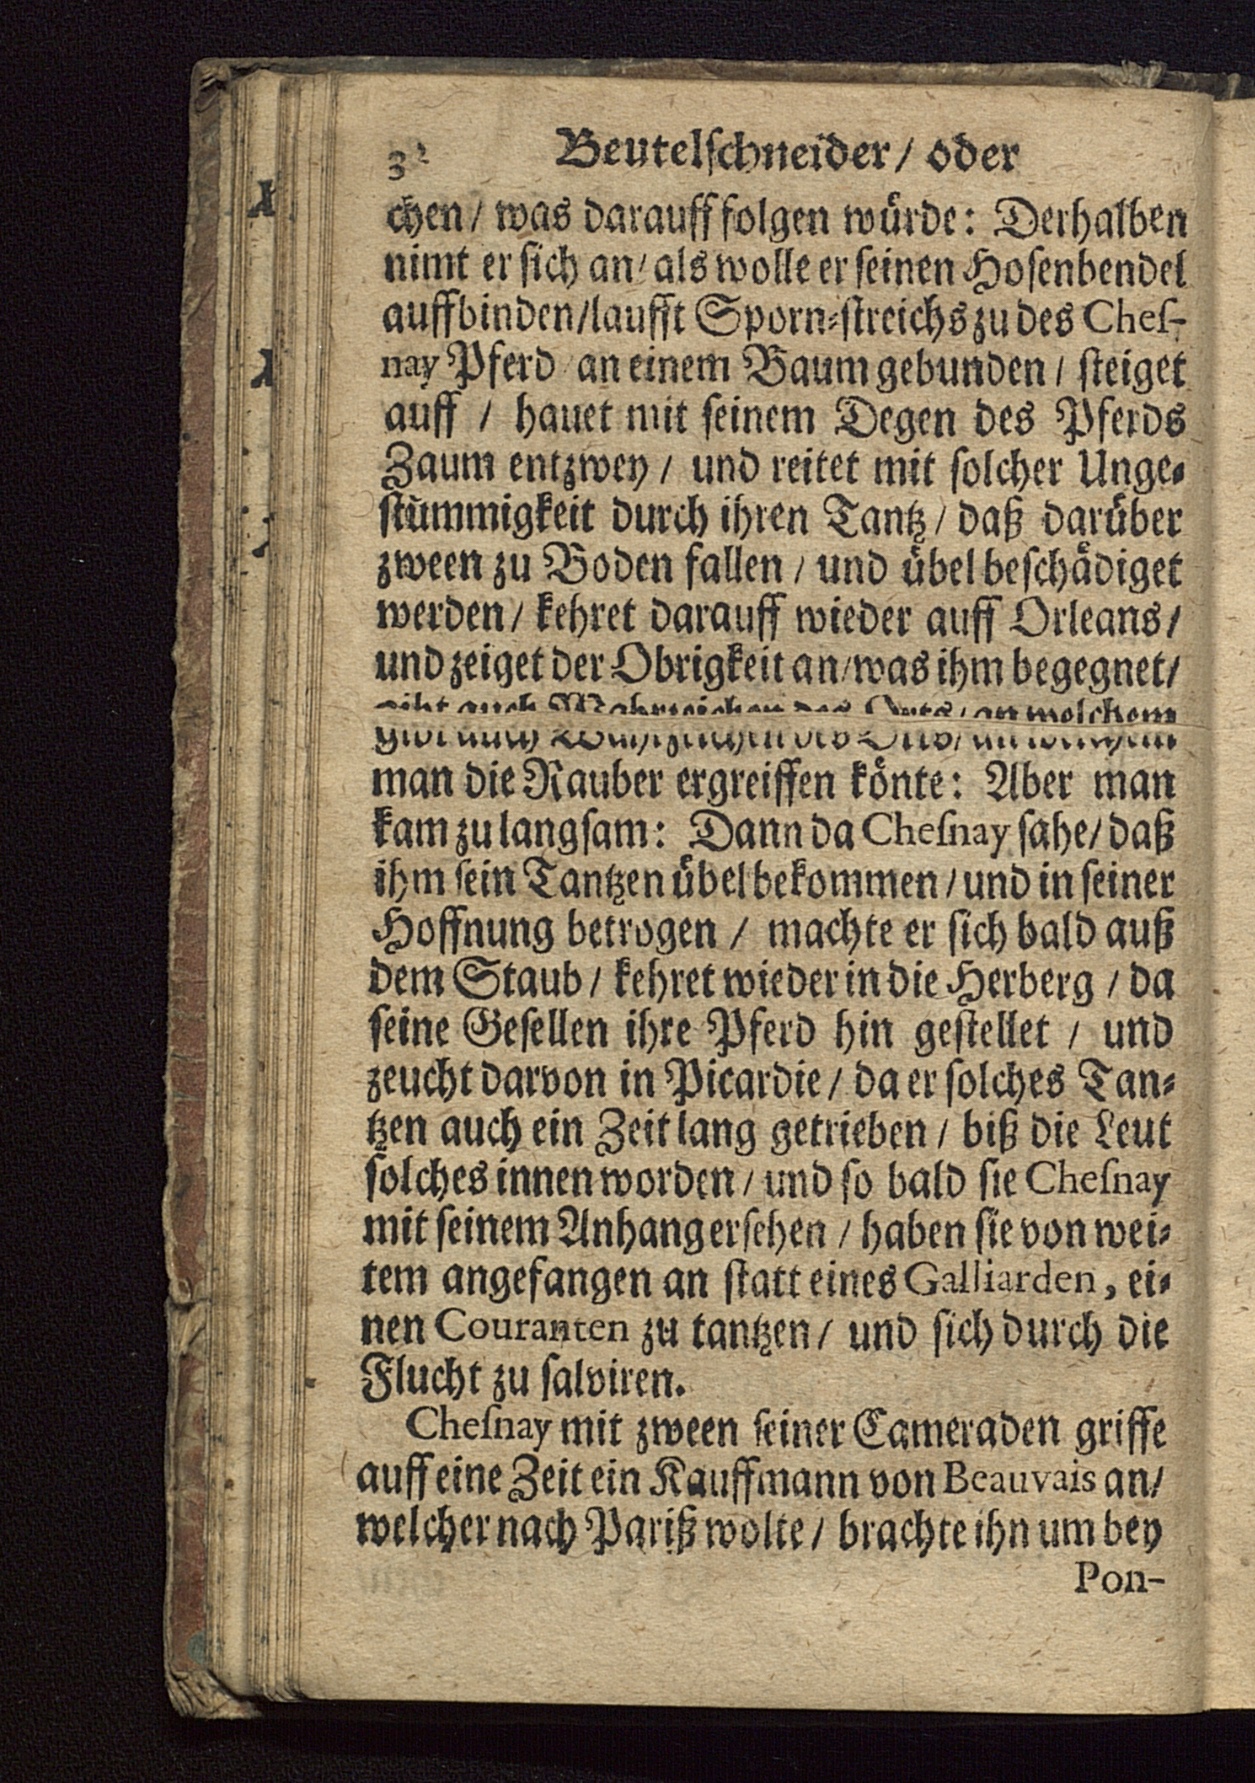 32 Beutelſchneider / oder
chen / was darauff folgen würde: Derhalben
nimt er ſich an / als wolle er ſeinen Hoſenbendel
auffbinden / laufft Sporn-ſtreichs zu des Cheſ-
nay Pferd / an einem Baum gebunden / ſteiget
auff / hauet mit ſeinem Degen des Pferds
Zaum entzwey / und reitet mit ſolcher Unge-
ſtümmigkeit durch ihren Tantz / daß darüber
zween zu Boden fallen / und übel beſchädiget
werden / kehret darauff wieder auff Orleans /
und zeiget der Obrigkeit an / was ihm begegnet /
man die Rauber ergreiffen könte: Aber man
kam zu langſam: Dann da Cheſnay ſahe / daß
ihm ſein Tantzen übel bekommen / und in ſeiner
Hoffnung betrogen / machte er ſich bald auß
dem Staub / kehret wieder in die Herberg / da
ſeine Geſellen ihre Pferd hin geſtellet / und
zeucht darvon in Picardie / da er ſolches Tan-
tzen auch ein Zeit lang getrieben / biß die Leut
ſolches innen worden / und ſo bald ſie Cheſnay
mit ſeinem Anhang erſehen / haben ſie von wei-
tem angefangen an ſtatt eines Galliarden, ei-
nen Couranten zu tantzen / und ſich durch die
Flucht zu ſalviren.
Cheſnay mit zween ſeiner Cameraden griffe
auff eine Zeit ein Kauffmann von Beauvais an /
welcher nach Pariß wolte / brachte ihn um bey
Pon-